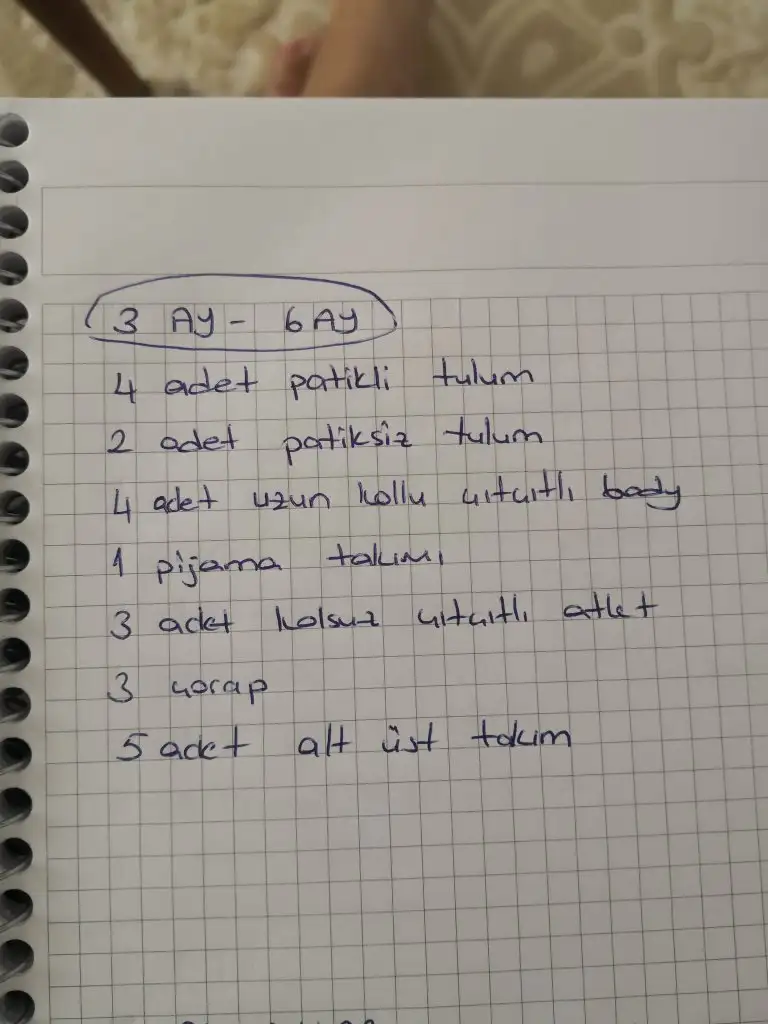 3 AY - 6 AY
4 adet patikli tulum
2 adet patiksiz tulum
4 adet uzun kollu çıtçıtlı body
1 pijama takımı
3 adet kolsuz çıtçıtlı atlet
3 çorap
5 adet alt üst takım